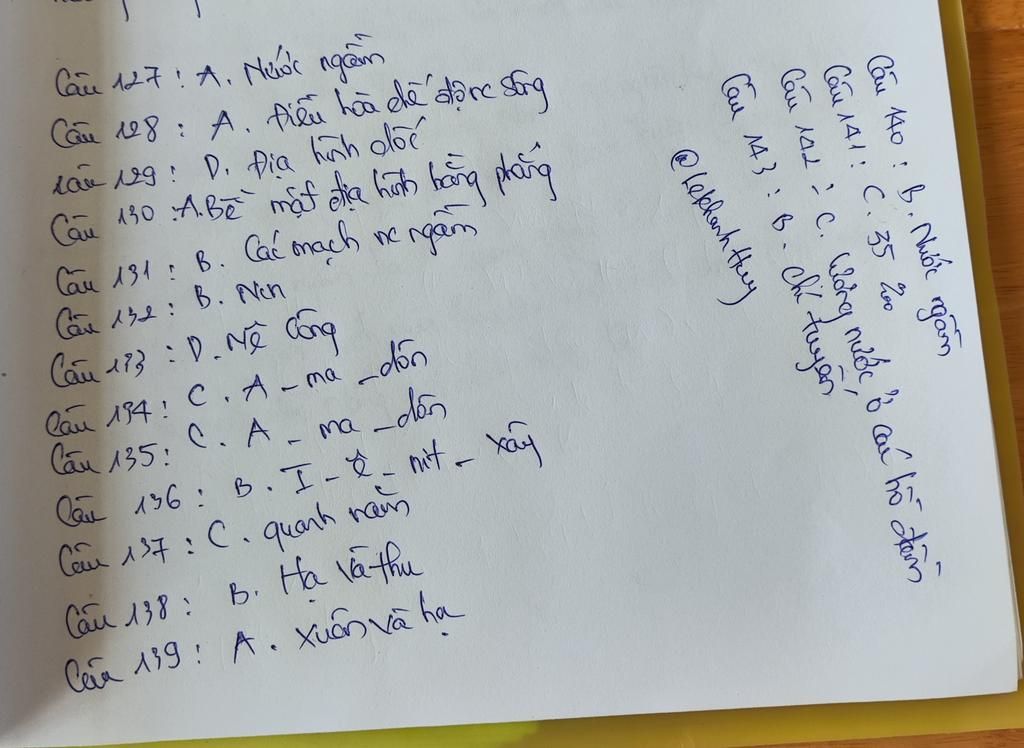 Câu 127 : A. Nước ngầm
Câu 128 : A. Điều hòa chế độ nc sông
Câu 129 : D. Địa hình dốc
Câu 130 : A. Bề mặt địa hình bằng phẳng
Câu 131 : B. Các mạch nc ngầm
Câu 132 : B. Nin
Câu 133 : D. Mê Công
Câu 134 : C. A - ma - dôn
Câu 135 : C. A - ma - dôn
Câu 136 : B. I - ê - nit - xây
Câu 137 : C. quanh năm
Câu 138 : B. Hạ và thu
Câu 139 : A. xuân và hạ
Câu 140 : B. Nước ngầm
Câu 141 : C. 35 200
Câu 142 : C. lượng nước ở các hồ đầm
Câu 143 : B. chí tuyến
@lekhanhthuy